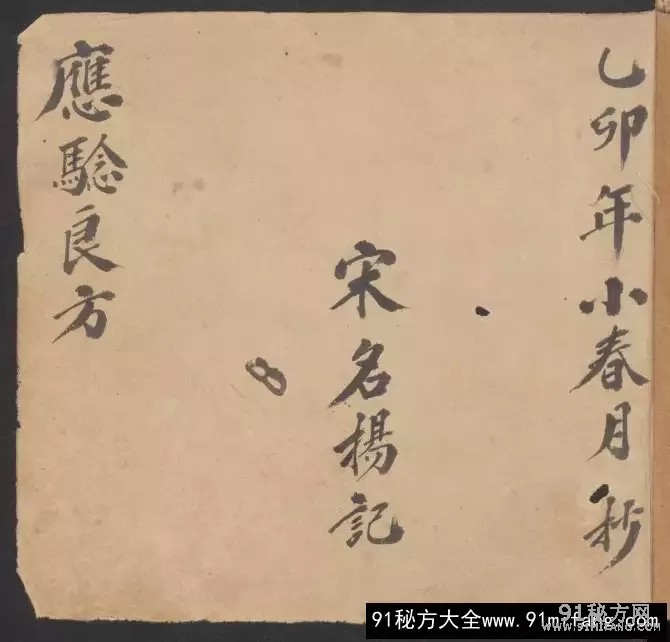 乙卯年小春月抄
宋名楊記
應騐良方
91秘方网
www.91MiFANG.COM
91秘方大全www.91mifang.com